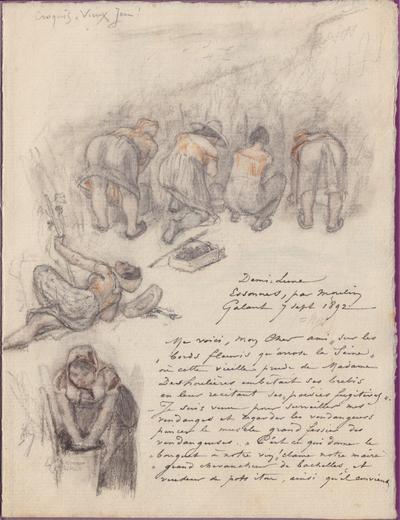 Croquis, Vieux Jeu!
Demi-Lune
Essonnes, par Moulin
Galant 7 sept 1892
Me voici, mon Cher ami, sur les
"bords fleuris qu'arrose la Seine,
où cette vieille prude de Madame
Deshoulières embêtait ses brebis
en leur récitant ses poésies fugitives.
Je suis venu pour surveiller mes
vendanges et regarder les vendangeurs
pincer le muscle grand fessier des
vendangeuses. "C'est ce qui donne le
bouquet à notre vin," clame notre maire
grand chevaucheur de bachelles, et
vendeur de pots itou, ainsi qu'il convient